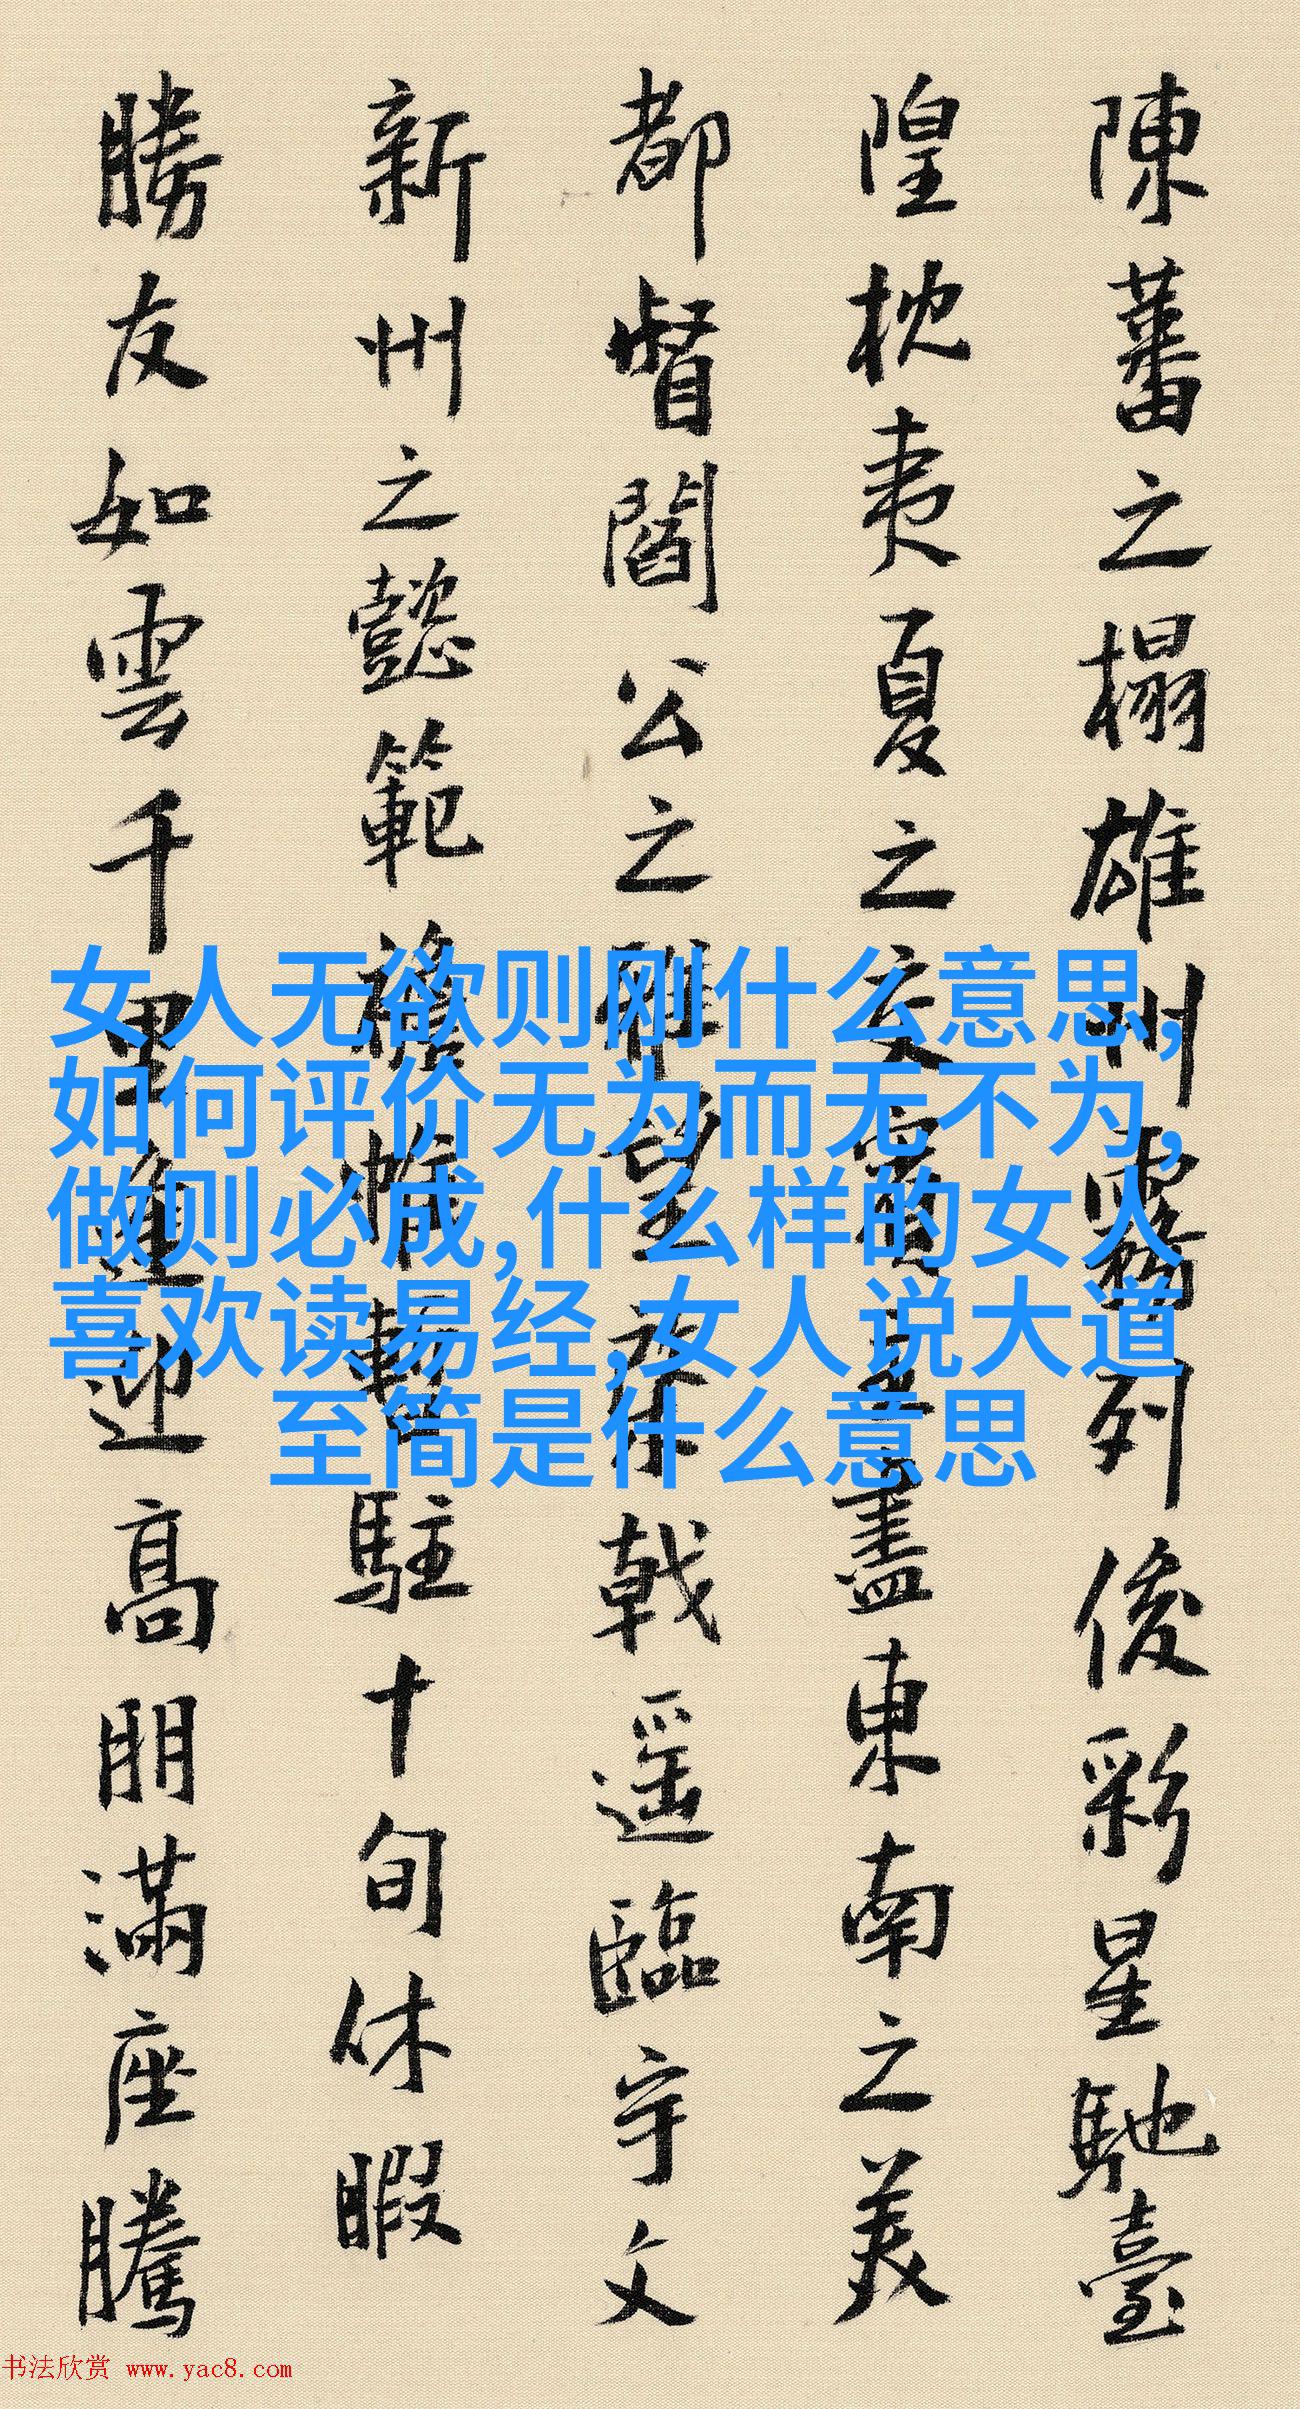 陳蕃之榻雄州霧列俊彩星馳臺
隍枕夷夏之交賓主盡東南之美
都督閻公之雅望棨戟遥臨宇文
新州之懿範襜帷暫駐十旬休暇
勝友如雲千里逢迎高朋滿座騰
女人无欲则刚什么意思,
如何评价无为而无不为,
做则必成,什么样的女人
喜欢读易经,女人说大道
至简是什么意思
书法欣赏 www.yac8.com